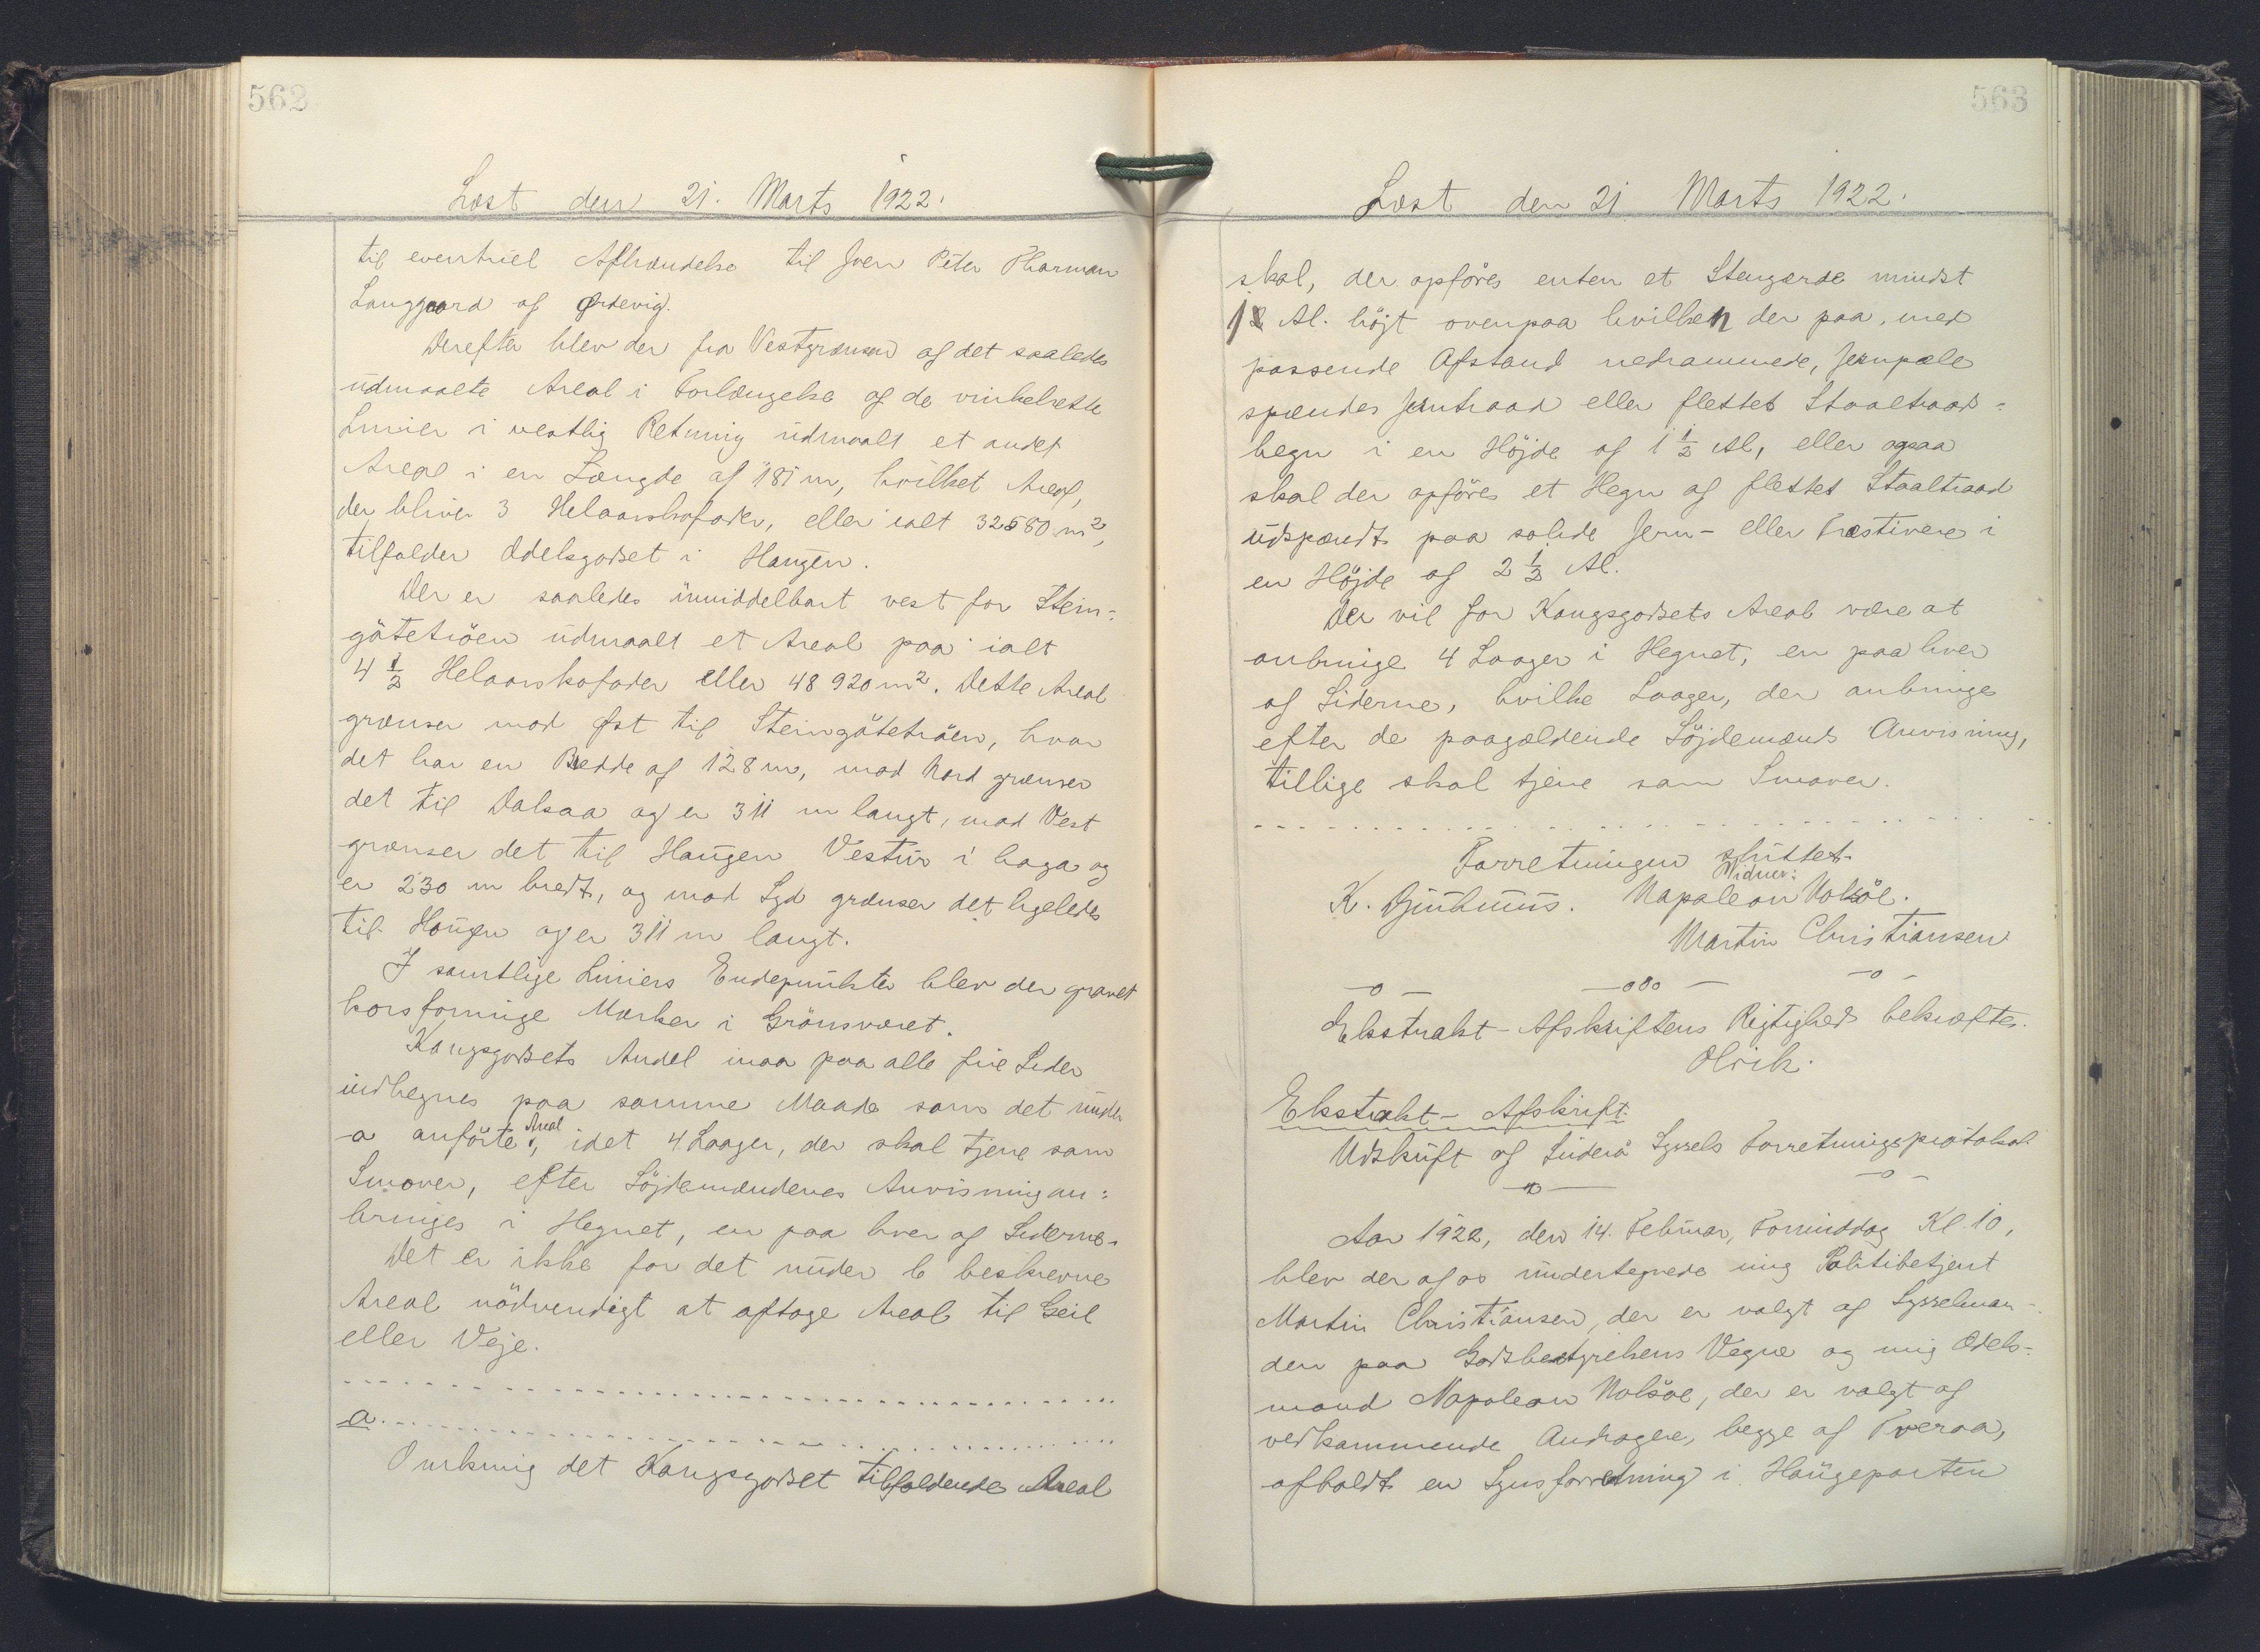 562
Læst den 21. Marts 1922.
til eventuel Afhændelse til Joen Peter Tharman
Langgaard af Ørdevig.
Derefter blev der fra Vestgrænsen af det saaledes
udmaalte Areal i Forlængelse af de vinkelrette
Linier i vestlig Retning udmaalt et andet
Areal i en Længde af 181 m, hvilket Areal,
der bliver 3 Helaarskofoder, eller ialt 32580 m²,
tilfalder Odelsgodset i Haugen.
Der er saaledes umiddelbart vest for Stein-
götetröen udmaalt et Areal paa ialt
4 1/2 Helaarskofoder eller 48920 m². Dette Areal
grænser mod Øst til Steingötetröen, hvor
det har en Bredde af 128 m, mod Nord grænser
det til Dalsaa og er 311 m langt, mod Vest
grænser det til Haugen Vestur i haga og
er 230 m bredt, og mod Syd grænser det ligeledes
til Haugen og er 311 m langt.
I samtlige Liniers Endepunkter blev der gravet
korsformige Mærker i Grönsværet.
Kongsgodsets Andel maa paa alle fire Sider
indhegnes paa samme Maade som det under
a anförte Areal, idet 4 Laager, der skal tjene som
Smover, efter Söjdemændenes Anvisning an-
bringes i Hegnet, en paa hver af Siderne.
Det er ikke for det under b beskrevne
Areal nödvendigt at aftage Areal til Geil
eller Veje.
a.
Omkring det Kongsgodset tilfaldende Areal
563
Læst den 21. Marts 1922.
skal, der opföres enten et Stengærde mindst
1 Al. höjt ovenpaa hvilken der paa, med
passende Afstand nedrammede, Jernpæle
spændes Jerntraad eller flettet Staaltraads-
hegn i en Höjde af 1 1/2 Al, eller ogsaa
skal der opföres et Hegn af flettet Staaltraad
udspændt paa solide Jern- eller Træstivere i
en Höjde af 2 1/2 Al.
Der vil for Kongsgodsets Areal være at
anbringe 4 Laager i Hegnet, en paa hver
af Siderne, hvilke Laager, der anbringes
efter de paagældende Söjdemænds Anvisning,
tillige skal tjene som Smover.
Forretningen sluttet.
Vidner:
K. Djurhuus. Napoleon Nolsöe.
Martin Christiansen
Ekstrakt-Afskriftens Rigtighed bekræftes.
Olrik.
Ekstrakt-Afskrift.
Udskrift af Suderö Syssels Forretningsprotokol
Aar 1922, den 14. Februar, Formiddag Kl. 10,
blev der af os undertegnede mig Politibetjent
Martin Christiansen, der er valgt af Sysselman-
den paa Godsbestyrelsens Vegne og mig Odels-
mand Napoleon Nolsöe, der er valgt af
vedkommende Andragere, begge af Tveraa,
afholdt en Synsforretning i Haugeparten